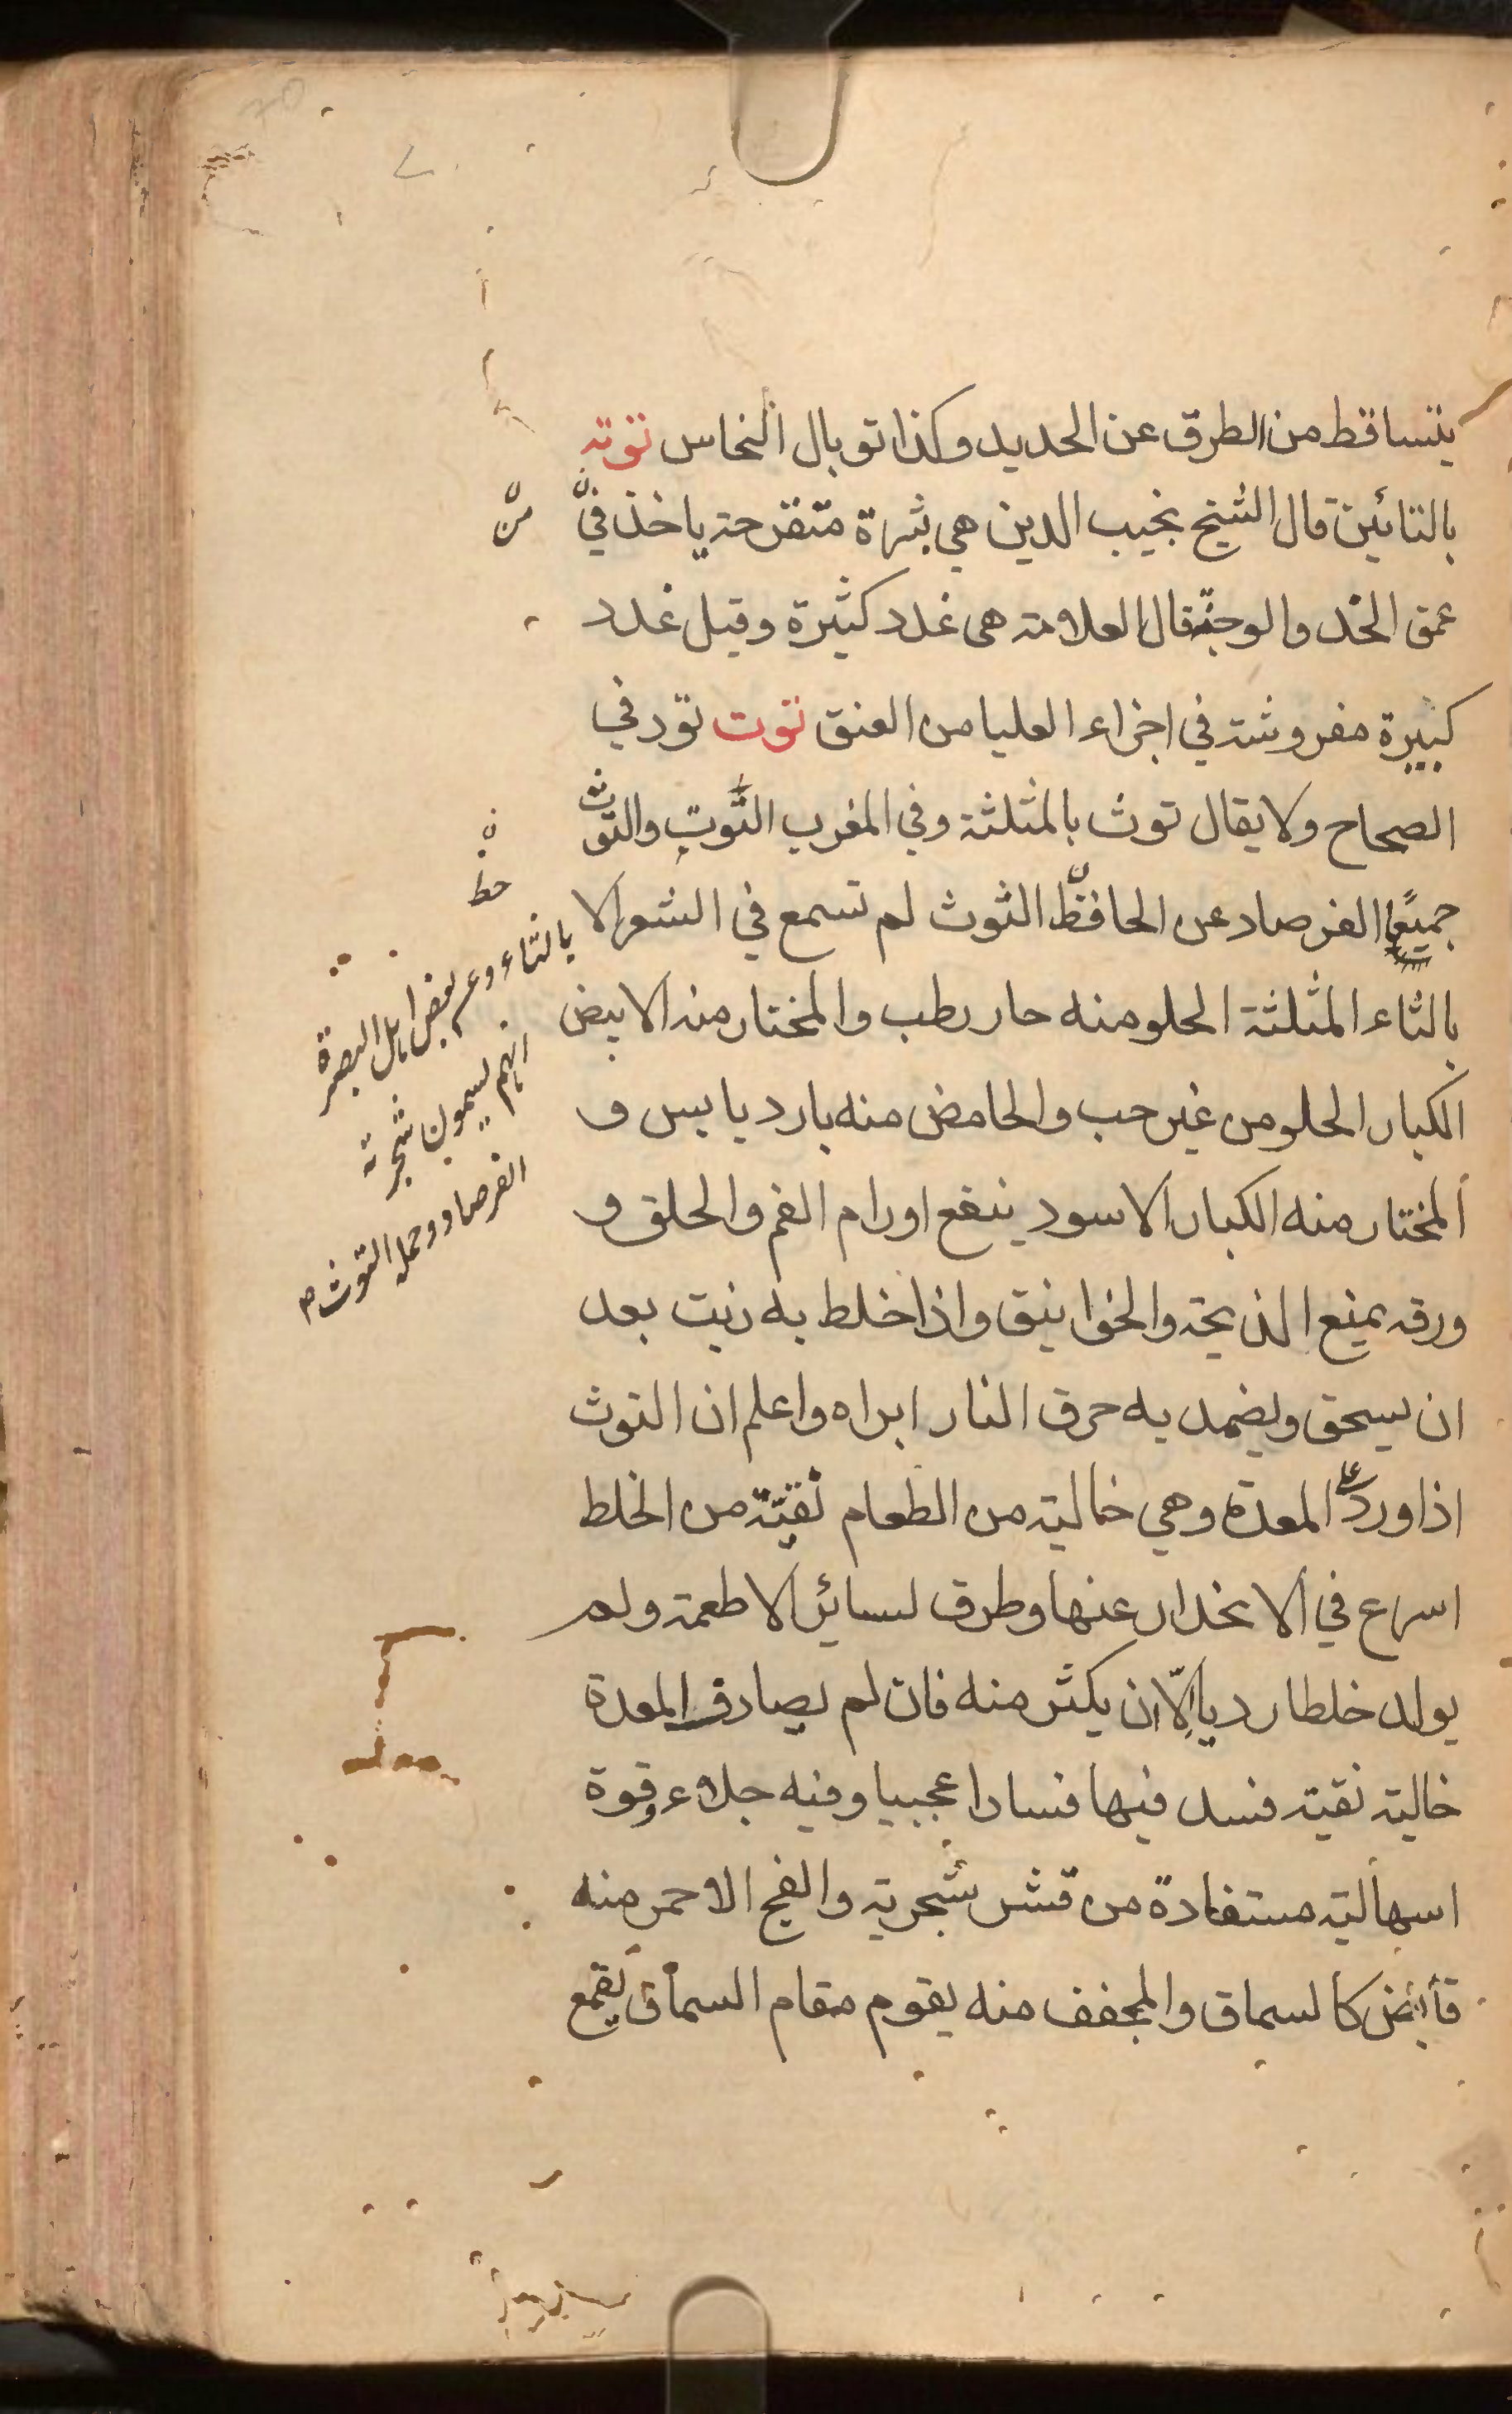 يتساقط من الطرق عن الحديد وكذا توبال النحاس توته
بالتائين قال الشيخ نجيب الدين هي بثرة متقرحة ياخذ في
من
عمق الخد والوجنة قال العلامة هي غدد كثيرة وقيل غدد
كبيرة مفروشة في اجزاء العليا من العنق توت تود في
الصحاح ولا يقال توث بالمثلثة وفي المغرب التوت والتوث
جميعا الفرصاد عن الحافظ التوث لم تسمع في الشعر الا
حط
بالثاء وعن بعض اهل البصرة
انهم يسمون شجرته
الفرصاد وحمله التوث صح
بالثاء المثلثة الحلو منه حار رطب والمختار منه الابيض
الكبار الحلو من غير حب والحامض منه بارد يابس و
المختار منه الكبار الاسود ينفع اورام الفم والحلق و
ورقه يمنع الذبحة والخوانيق واذا خلط به زيت بعد
ان يسحق ويضمد به حرق النار ابراه واعلم ان التوث
اذا ورد على المعدة وهي خالية من الطعام نقية من الخلط
اسرع في الانحدار عنها وطرق لسائر الاطعمة ولم
يولد خلطا رديا الّا ان يكثر منه فان لم يصادف المعدة
خالية نقية فسد فيها فسادا عجيبا وفيه جلاء وقوة
اسهالية مستفادة من قشر شجرته والفج الاحمر منه
قابض كالسماق والمجفف منه يقوم مقام السماق يقمع